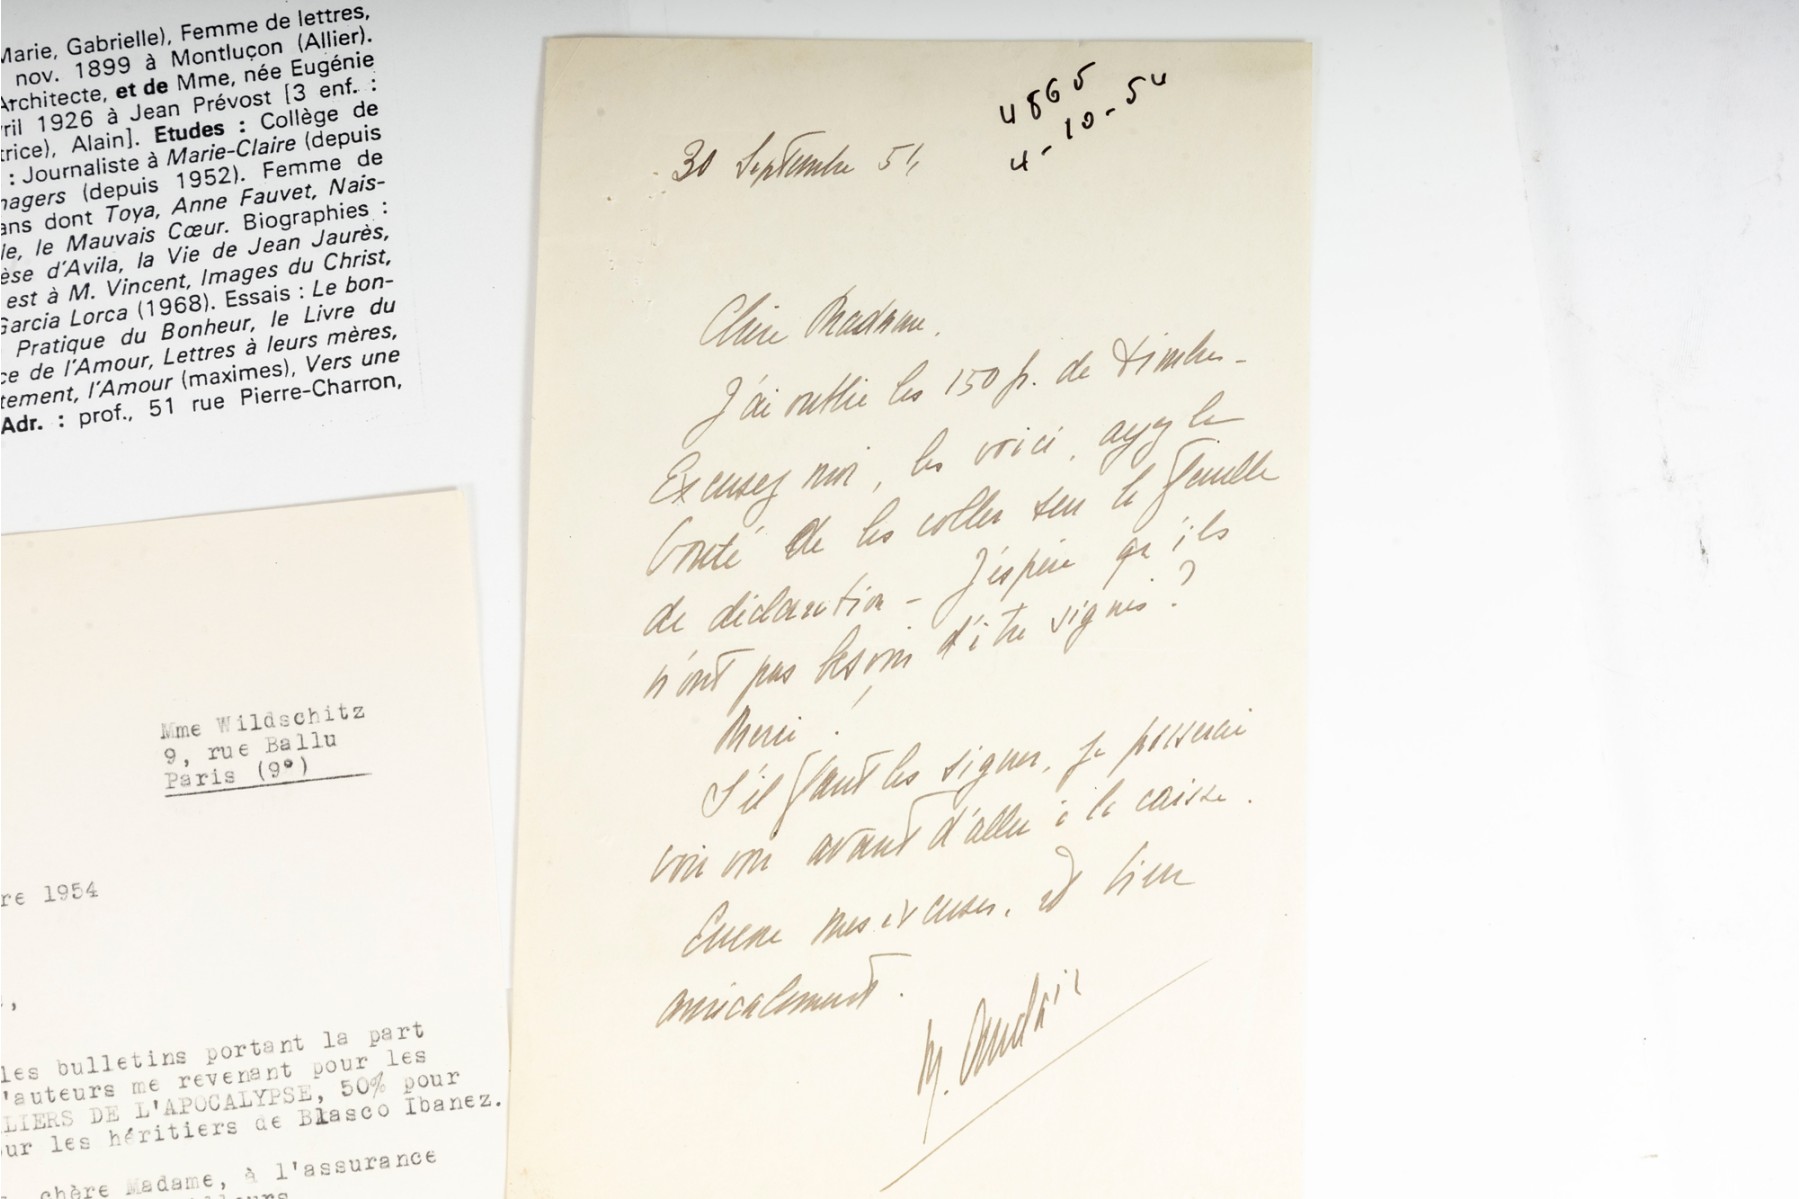 Marie, Gabrielle), Femme de lettres,
nov. 1899 à Montluçon (Allier).
Architecte, et de Mme, née Eugénie
ril 1926 à Jean Prévost [3 enf. :
trice), Alain]. Etudes : Collège de
: Journaliste à Marie-Claire (depuis
nagers (depuis 1952). Femme de
ans dont Toya, Anne Fauvet, Nais-
le, le Mauvais Cœur. Biographies :
èse d'Avila, la Vie de Jean Jaurès,
est à M. Vincent, Images du Christ,
Garcia Lorca (1968). Essais : Le bon-
Pratique du Bonheur, le Livre du
ce de l'Amour, Lettres à leurs mères,
tement, l'Amour (maximes), Vers une
Adr. : prof., 51 rue Pierre-Charron,
Mme Wildschitz
9, rue Ballu
Paris (9°)
re 1954
,
les bulletins portant la part
'auteurs me revenant pour les
LIERS DE L'APOCALYPSE, 50% pour
ur les héritiers de Blasco Ibanez.
chère Madame, à l'assurance
4865
4-10-54
30 Septembre 54
Chère Madame,
J'ai oublié les 150 fr. de timbres -
Excusez moi, les voici, ayez la
bonté de les coller sur la feuille
de déclaration - J'espère qu'ils
n'ont pas besoin d'être signés ?
Merci !
S'il faut les signer, je passerai
voir avant d'aller à la caisse.
Encore mes excuses, et bien
amicalement.
M. Auclair